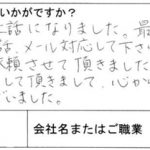 いかがですか？
話になりました。最
話、メール対応して下さ
依頼させて頂きました
して頂きまして、心か
いました。
会社名またはご職業